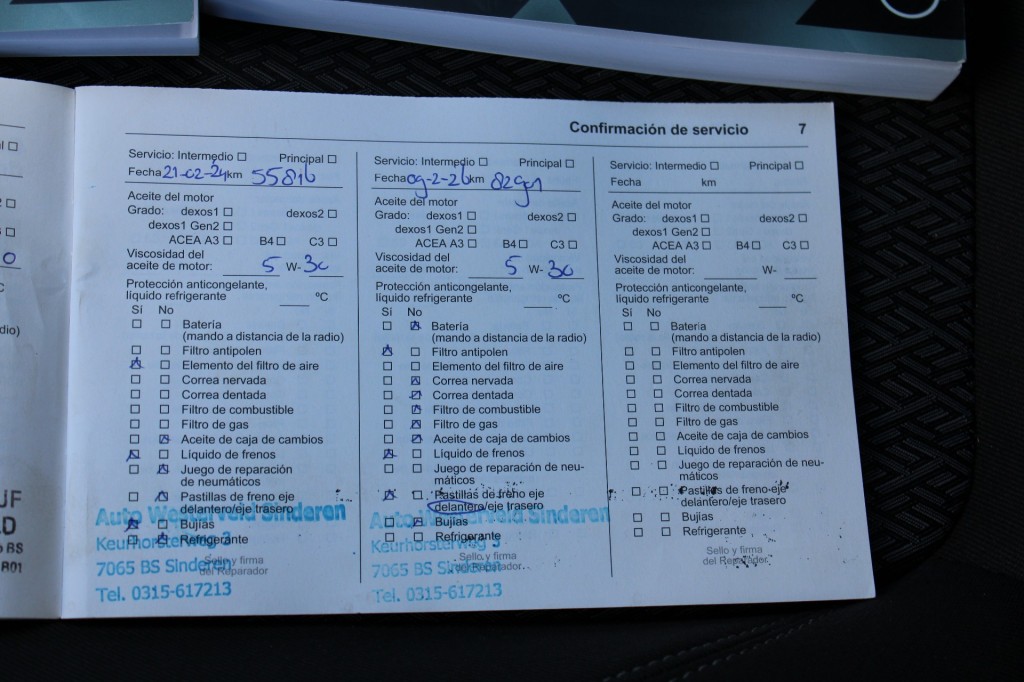 Confirmación de servicio 7
Servicio: Intermedio ☐ Principal ☐
Fecha 21-02-24 km 55816
Aceite del motor
Grado: dexos1 ☐ dexos2 ☐
dexos1 Gen2 ☐
ACEA A3 ☐ B4 ☐ C3 ☐
Viscosidad del
aceite de motor: 5 W- 30
Protección anticongelante,
líquido refrigerante ____ ºC
Sí No
☐ ☐ Batería
(mando a distancia de la radio)
☐ ☐ Filtro antipolen
☒ ☐ Elemento del filtro de aire
☐ ☐ Correa nervada
☐ ☐ Correa dentada
☐ ☐ Filtro de combustible
☐ ☐ Filtro de gas
☐ ☒ Aceite de caja de cambios
☒ ☐ Líquido de frenos
☐ ☒ Juego de reparación
de neumáticos
☐ ☒ Pastillas de freno eje
delantero/eje trasero
☒ ☐ Bujías
☐ ☒ Refrigerante
Sello y firma
del Reparador
Auto Westerveld Sinderen
Keurhorsterweg 3
7065 BS Sinderen
Tel. 0315-617213
Servicio: Intermedio ☐ Principal ☐
Fecha 09-2-26 km
Aceite del motor
Grado: dexos1 ☐ dexos2 ☐
dexos1 Gen2 ☐
ACEA A3 ☐ B4 ☐ C3 ☐
Viscosidad del
aceite de motor: 5 W- 30
Protección anticongelante,
líquido refrigerante ____ ºC
Sí No
☐ ☒ Batería
(mando a distancia de la radio)
☒ ☐ Filtro antipolen
☐ ☐ Elemento del filtro de aire
☐ ☒ Correa nervada
☐ ☒ Correa dentada
☐ ☒ Filtro de combustible
☐ ☒ Filtro de gas
☐ ☒ Aceite de caja de cambios
☒ ☐ Líquido de frenos
☐ ☐ Juego de reparación de neu-
máticos
☒ ☐ Pastillas de freno eje
delantero/eje trasero
☐ ☒ Bujías
☐ ☐ Refrigerante
Sello y firma
del Reparador
Auto Westerveld Sinderen
Keurhorsterweg 3
7065 BS Sinderen
Tel. 0315-617213
Servicio: Intermedio ☐ Principal ☐
Fecha km
Aceite del motor
Grado: dexos1 ☐ dexos2 ☐
dexos1 Gen2 ☐
ACEA A3 ☐ B4 ☐ C3 ☐
Viscosidad del
aceite de motor: ____ W- ____
Protección anticongelante,
líquido refrigerante ____ ºC
Sí No
☐ ☐ Batería
(mando a distancia de la radio)
☐ ☐ Filtro antipolen
☐ ☐ Elemento del filtro de aire
☐ ☐ Correa nervada
☐ ☐ Correa dentada
☐ ☐ Filtro de combustible
☐ ☐ Filtro de gas
☐ ☐ Aceite de caja de cambios
☐ ☐ Líquido de frenos
☐ ☐ Juego de reparación de neu-
máticos
☐ ☐ Pastillas de freno eje
delantero/eje trasero
☐ ☐ Bujías
☐ ☐ Refrigerante
Sello y firma
del Reparador